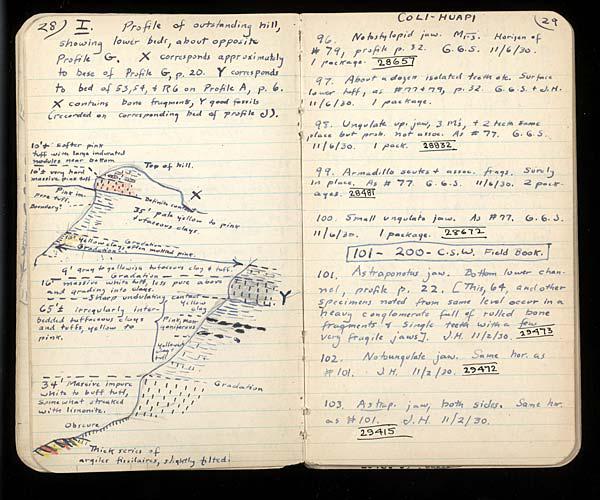 28) I. Profile of outstanding hill,
showing lower beds, about opposite
Profile G. X corresponds approximately
to base of Profile G, p. 20. Y corresponds
to bed of 53, 54, & R6 on Profile A, p. 6.
X contains bone fragments, Y good fossils
(recorded on corresponding bed of profile J).
10'± softer pink
tuff with large indurated
nodules near bottom
Top of hill.
10'± very hard
massive pink tuff
Pink im-
pure tuff.
X
Definite contact
Boundary?
35' pale yellow to pink
tufaceous clays.
10' Yellow clay, often mottled pink.
Gradation
Gradation?
9' gray to yellowish tufaceous clay & tuff.
Gradation
16' massive white tuff, less pure above
and grading into clays.
Sharp undulating contact
Y
65'± irregularly inter-
bedded tuffaceous clays
and tuffs, yellow to
pink.
Yellow
clay
Pink, man-
ganiferous
Yellow
clay
tuff
34' Massive impure
white to buff tuff,
somewhat streaked
with limonite.
Gradation
Obscure
Thick series of
argiles fissilaires, slightly tilted.
COLI-HUAPI
(29
96. Notostylopid jaw. M1-3. Horizon of
#79, profile p. 32. G.G.S. 11/6/30.
1 package. 28657
97. About a dozen isolated teeth etc. Surface
lower tuff, as #77 & 79, p. 32. G.G.S. & J.H.
11/6/30. 1 package.
98. Ungulate up. jaw, 3 M's, + 2 teeth same
place but prob. not assoc. As #77. G.G.S.
11/6/30. 1 pack. 28932
99. Armadillo scutes & assoc. frags. Surely
in place. As #77 G.G.S. 11/6/30. 2 pack-
ages. 28481
100. Small ungulate jaw. As #77. G.G.S.
11/6/30. 1 package. 28672
101 - 200 - C.S.W. Field Book.
101. Astraponotus jaw. Bottom lower chan-
nel, profile p. 22. [This, 64, and other
specimens noted from same level occur in a
heavy conglomerate full of rolled bone
fragments & single teeth with a few
very fragile jaws]. J.H. 11/2/30. 29473
102. Notoungulate jaw. Same hor. as
#101. J.H. 11/2/30. 29472
103. Astrap. jaw, both sides. Same hor.
as #101. J.H. 11/2/30.
29415